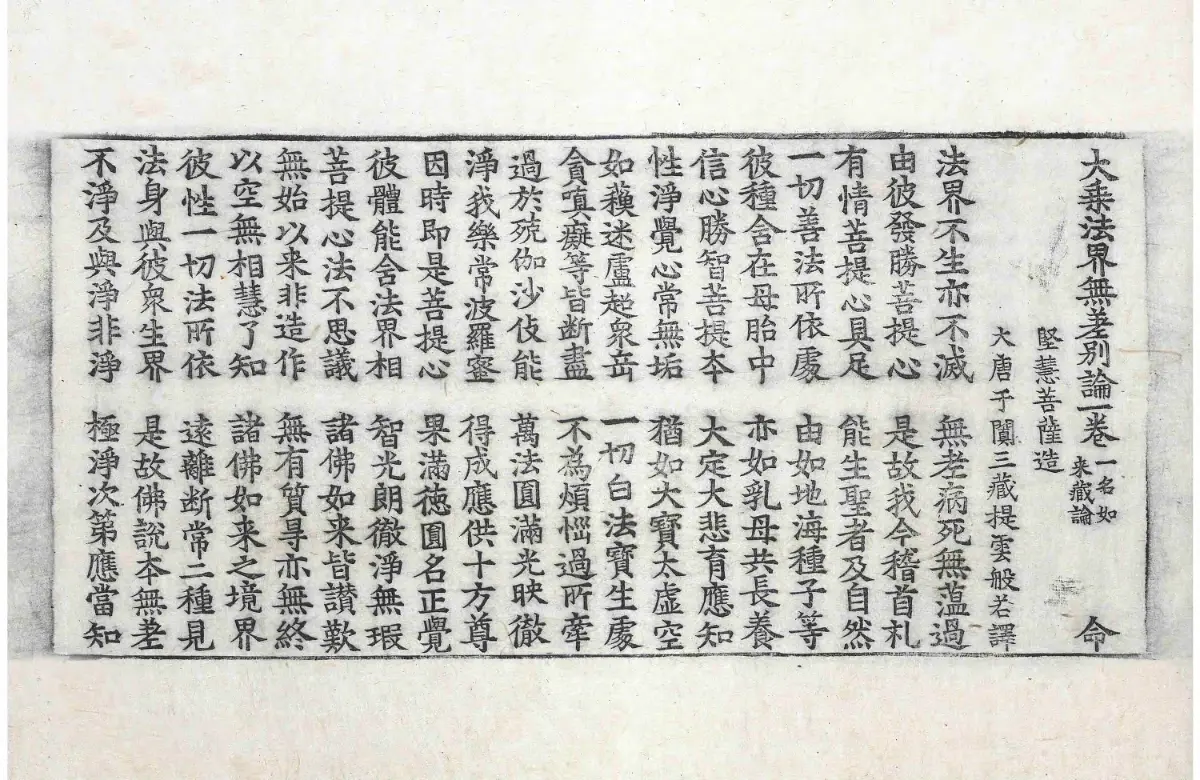 大乗法界無差别論一卷 一名如来藏論 命
堅慧菩薩造
大唐于闐三藏提雲般若譯
法界不生亦不滅 無老病死無薀過
由彼發勝菩提心 是故我今稽首礼
有情菩提心具足 能生聖者及自然
一切善法所依處 由如地海種子等
彼種含在母胎中 亦如乳母共長養
信心勝智菩提本 大定大悲育應知
性淨覺心常無垢 猶如大寶太虚空
如蘓迷盧超衆岳 一切白法寶生處
貪嗔癡等皆断盡 不為煩惱過所牽
過於殑伽沙伎能 萬法圓滿光映徹
淨我樂常波羅蜜 得成應供十方尊
因時即是菩提心 果滿徳圓名正覺
彼體能含法界相 智光朗徹淨無瑕
菩提心法不思議 諸佛如来皆讃歎
無始以来非造作 無有質㝵亦無終
以空無相慧了知 諸佛如来之境界
彼性一切法所依 遠離断常二種見
法身與彼衆生界 是故佛説本無差
不淨及與淨非淨 極淨次第應當知